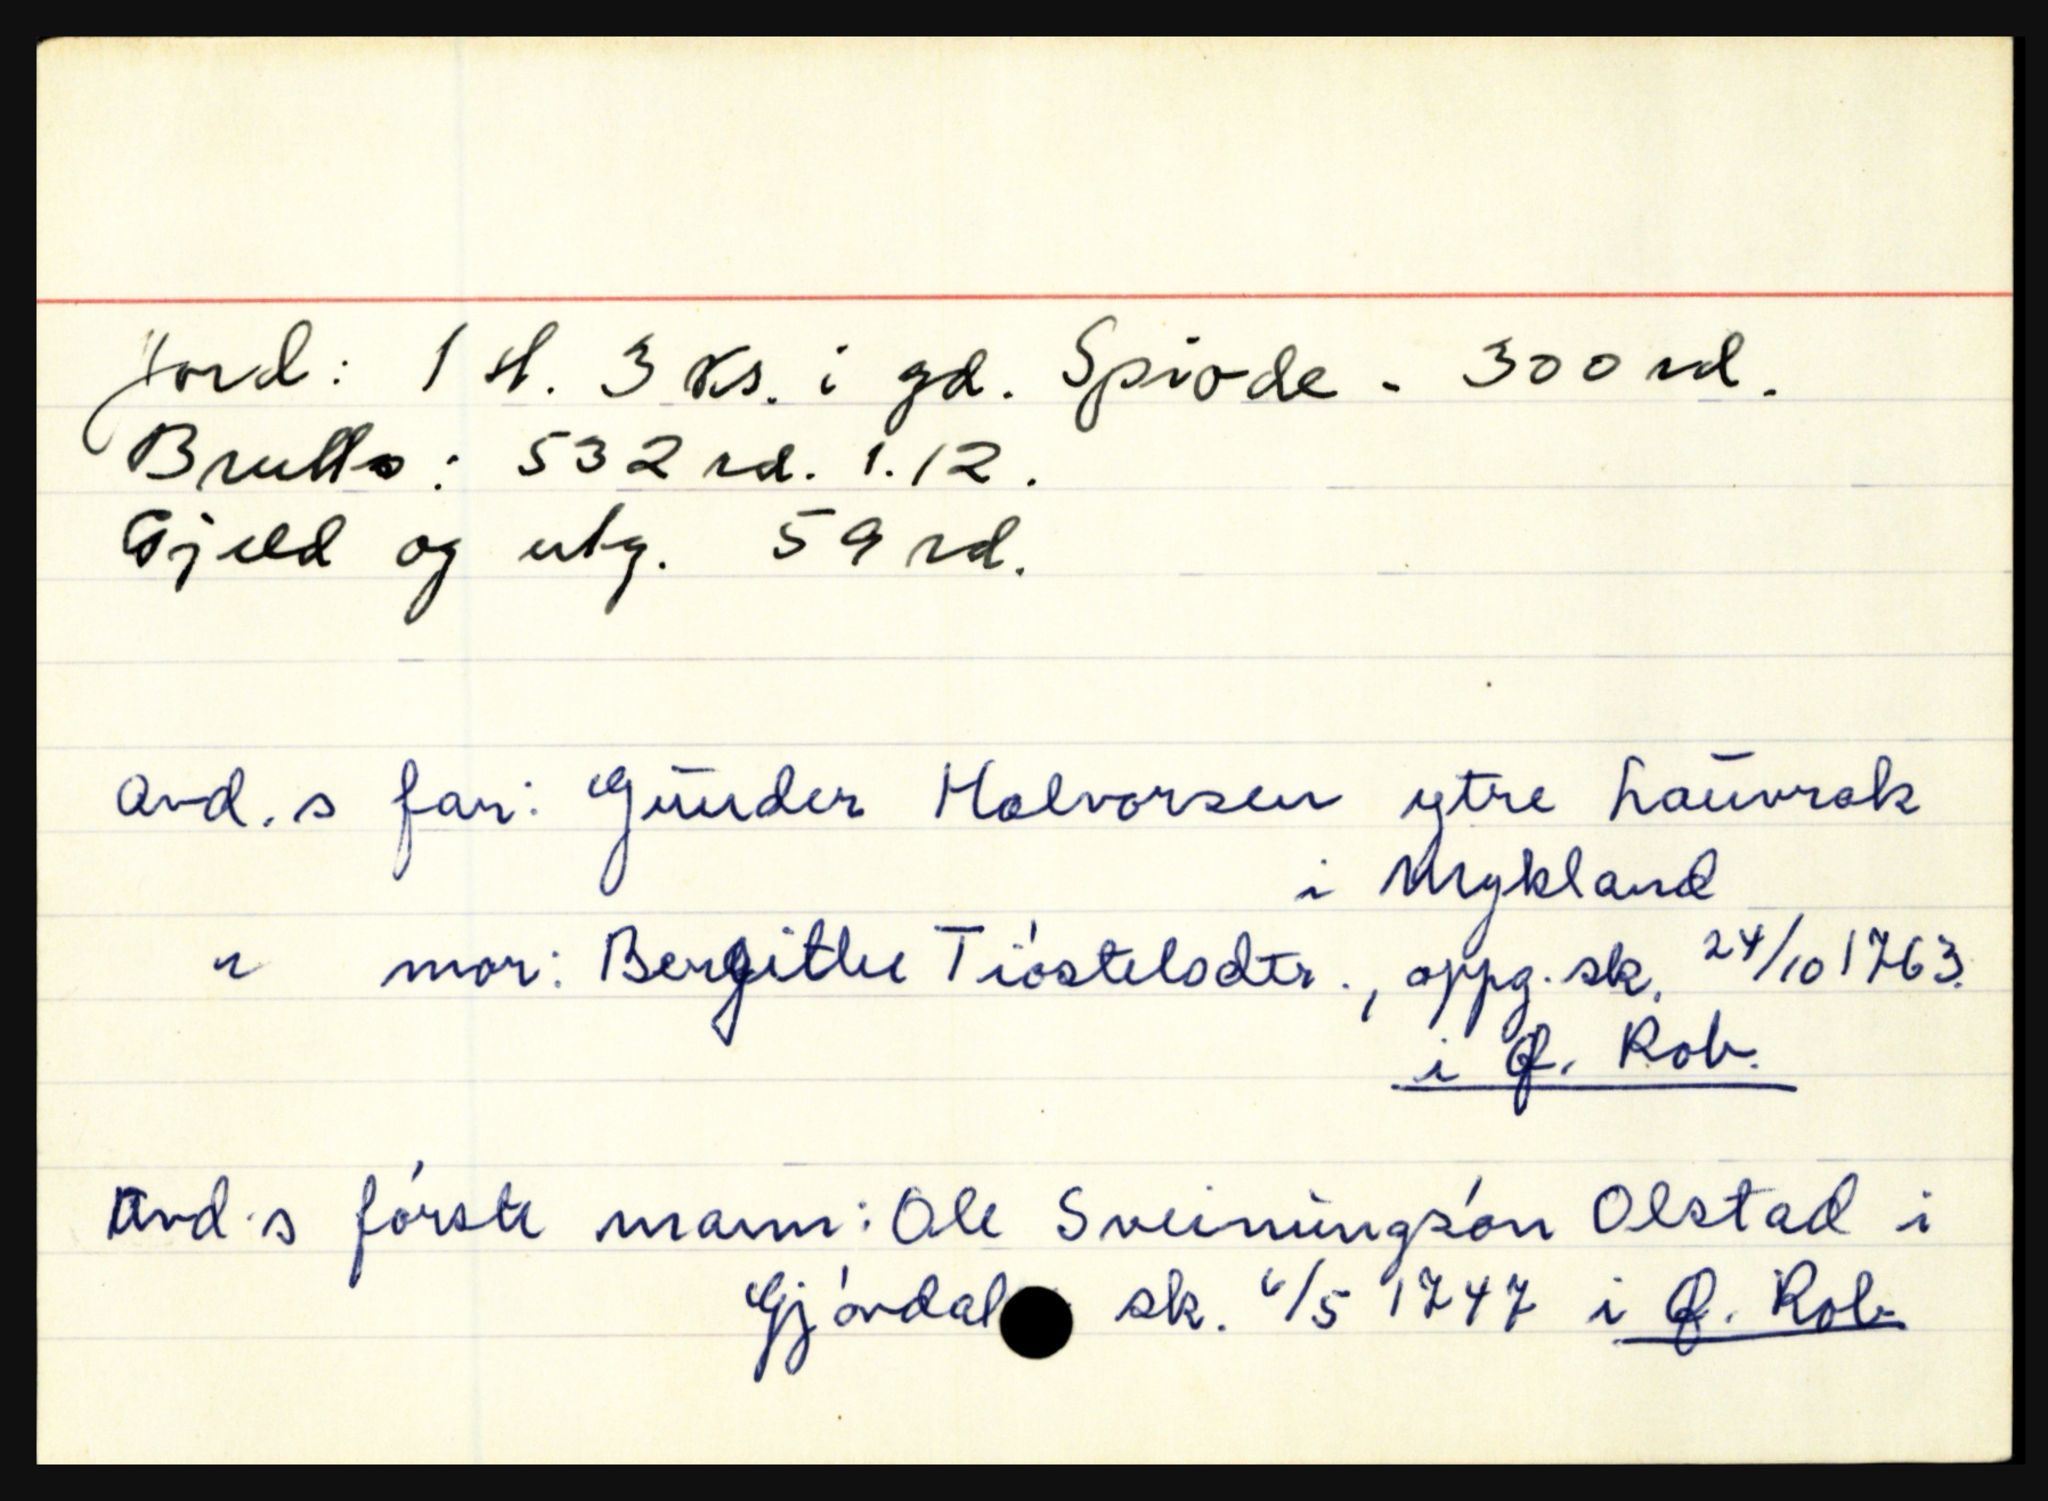 Jord: 1 sl. 3 Ks. i gd. Spiode - 300 rd.
Brutto: 532 rd. 1.12.
Gjeld og utg. 59 rd.
Avd.s far: Gunder Halvorsen ytre Lauvrak
i Mykland
" mor: Bergithe Tióstelsdtr., oppg. sk. 24/10 1763.
i Ø. Rob.
Avd.s fórste mann: Ole Sveinungsón Olstad i
Gjóvdal sk. 6/5 1747 i Ø. Rob.